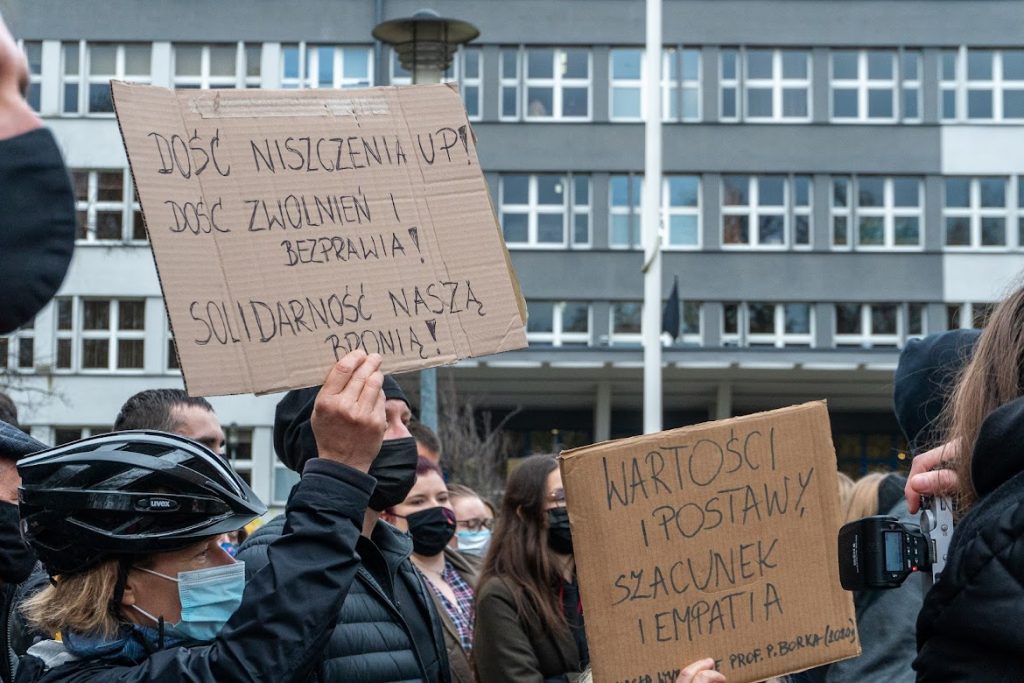 DOŚĆ NISZCZENIA UP!
DOŚĆ ZWOLNIEŃ I
BEZPRAWIA!
SOLIDARNOŚĆ NASZĄ
BRONIĄ!
WARTOŚCI
I POSTAWY,
SZACUNEK
I EMPATIA
PROF. P. BORKA (2020)
uvex